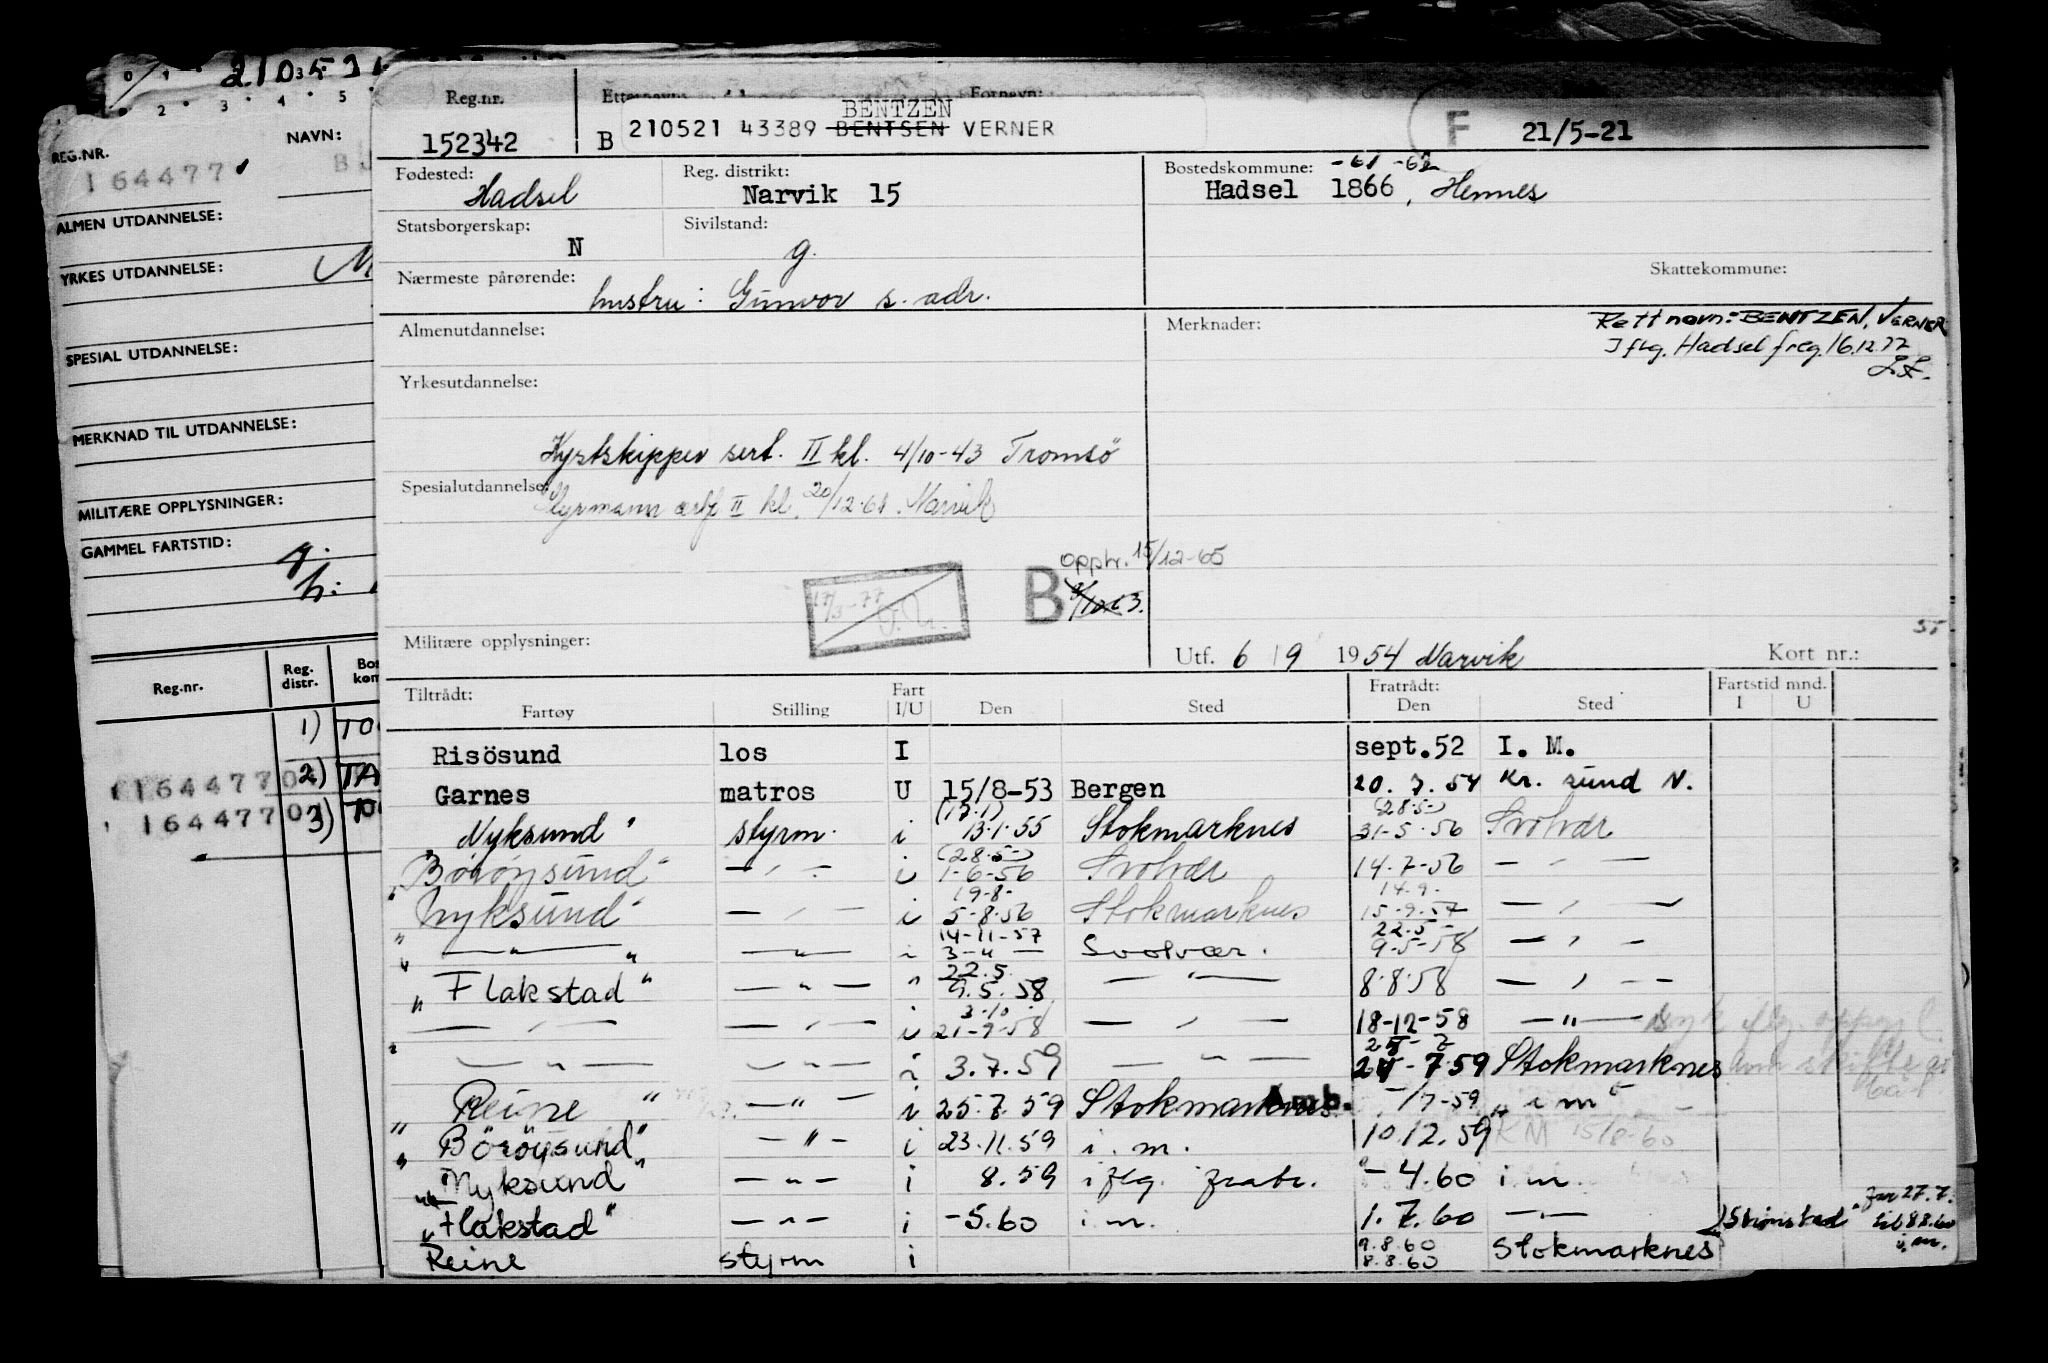 0 1 210531
0 2 3 4 5
NAVN:
REG.NR.
164477
ALMEN UTDANNELSE:
YRKES UTDANNELSE: M
SPESIAL UTDANNELSE:
MERKNAD TIL UTDANNELSE:
MILITÆRE OPPLYSNINGER:
GAMMEL FARTSTID: g.
h:
Reg.nr. Reg. distr.
1)
164477 2) TA
164477 3)
Reg.nr. Etternavn Fornavn:
BENTZEN
152342 B 210521 43389 BENTSEN VERNER F 21/5-21
Fødested: Hadsel Reg. distrikt: Narvik 15 Bostedskommune: -61 -62
Hadsel 1866, Hennes
Statsborgerskap: N Sivilstand: g.
Nærmeste pårørende: hustru: Gunvor s. adr. Skattekommune:
Almenutdannelse: Merknader: Rett navn: BENTZEN, VERNER
Iflg. Hadsel freg. 16.12.77
Yrkesutdannelse:
Kystskipper sert. II kl. 4/10-43 Tromsö
Spesialutdannelse: Styrmann serf II kl. 20/12-61. Narvik
opptr. 15/12-65
17/3-77 B
Militære opplysninger: Utf. 6/9 1954 Narvik Kort nr.:
Tiltrådt: Fart Fratrådt: Fartstid mnd.
Fartøy Stilling I/U Den Sted Den Sted I U
Risösund los I sept.52 I. M.
Garnes matros U 15/8-53 Bergen 20.7.54 Kr. sund N.
(13.1) (28.5-)
"Nyksund" styrm. i 13.1.55 Stokmarknes 31-5-56 Svolvær
(28.5-)
"Böröysund" — " — i 1-6-56 Svolvær 14.7-56 — " —
19-8- 14.9.
"Nyksund" — " — i 5-8-56 Stokmarknes 15-9-57 — " —
14-11-57 22.5-
" — " — " — " — i 3-4 — Svolvær. 9-5-58 — " —
22.5.
"Flakstad" — " — " 9.5.58 — " — 8.8.58 — " —
3-10
— " — — " — i 21-9-58 — " — 18-12-58 — " —
25-7
— " — — " — i 3.7.59 — " — 24-7.59 Stokmarknes
"Reine" — " — i 25.7.59 Stokmarknes Amb. /7-59 i m
"Böröysund" — " — i 23.11.59 i. m. 10.12.59 KM 15/8-60
"Nyksund" — " — i 8.59 iflg. fratr. - 4.60 i m.
"Flakstad" — " — i -5.60 i m. 1.7.60 — " — "Strönstad" fra 27.7. til 8.8.60 i. m.
9.8.60
Reine styrm i 8.8.60 Stokmarknes